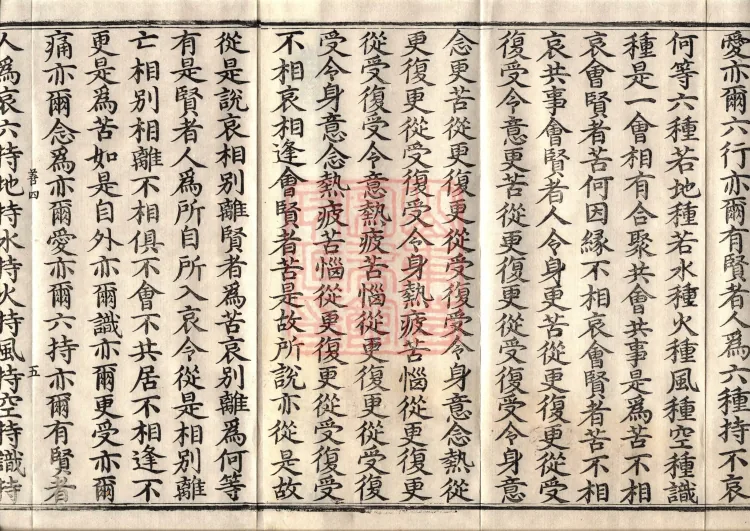 愛亦爾六行亦爾有賢者人爲六種持不哀
何等六種若地種若水種火種風種空種識
種是一會相有合聚共會共事是爲苦不相
哀會賢者苦何因緣不相哀會賢者苦不相
哀共事會賢者人令身更苦從更復更從受
復受令意更苦從更復更從受復受令身意
念更苦從更復更從受復受令身意念熱從
更復更從受復受令身熱疲苦惱從更復更
從受復受令意熱疲苦惱從更復更從受復
受令身意念熱疲苦惱從更復更從受復受
不相哀相逢會賢者苦是故所說亦從是故
從是說哀相別離賢者爲苦哀別離爲何等
有是賢者人爲所自所入哀令從是相別離
亡相別相離不相俱不會不共居不相逢不
更是爲苦如是自外亦爾識亦爾更受亦爾
痛亦爾念爲亦爾愛亦爾六持亦爾有賢者
四 五
人爲哀六持地持水持火持風持空持識持